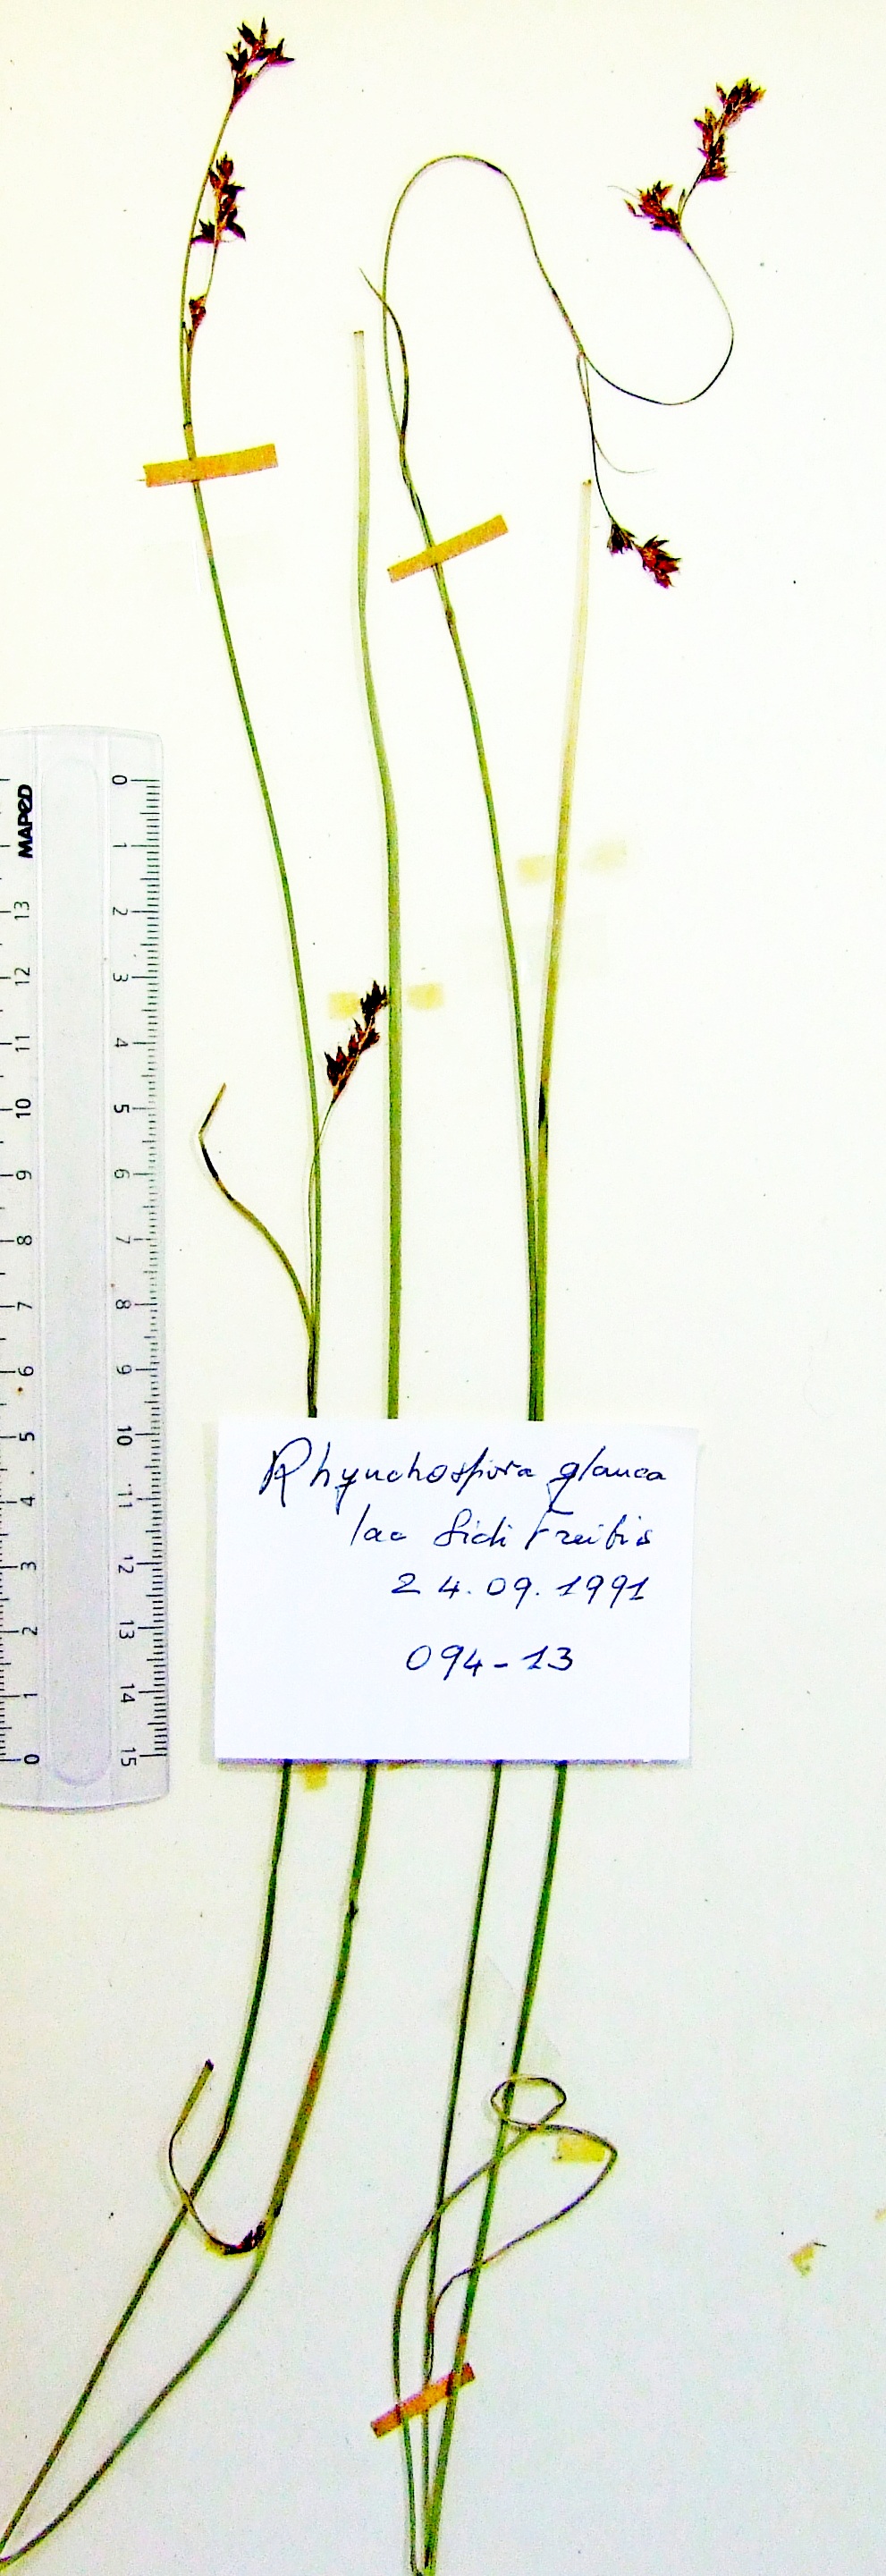 Rhynchospora glauca
lac Sidi Freitis
24.09.1991
094-13
MAPED
0 1 2 3 4 5 6 7 8 9 10 11 12 13 14 15
13 12 11 10 9 8 7 6 5 4 3 2 1 0